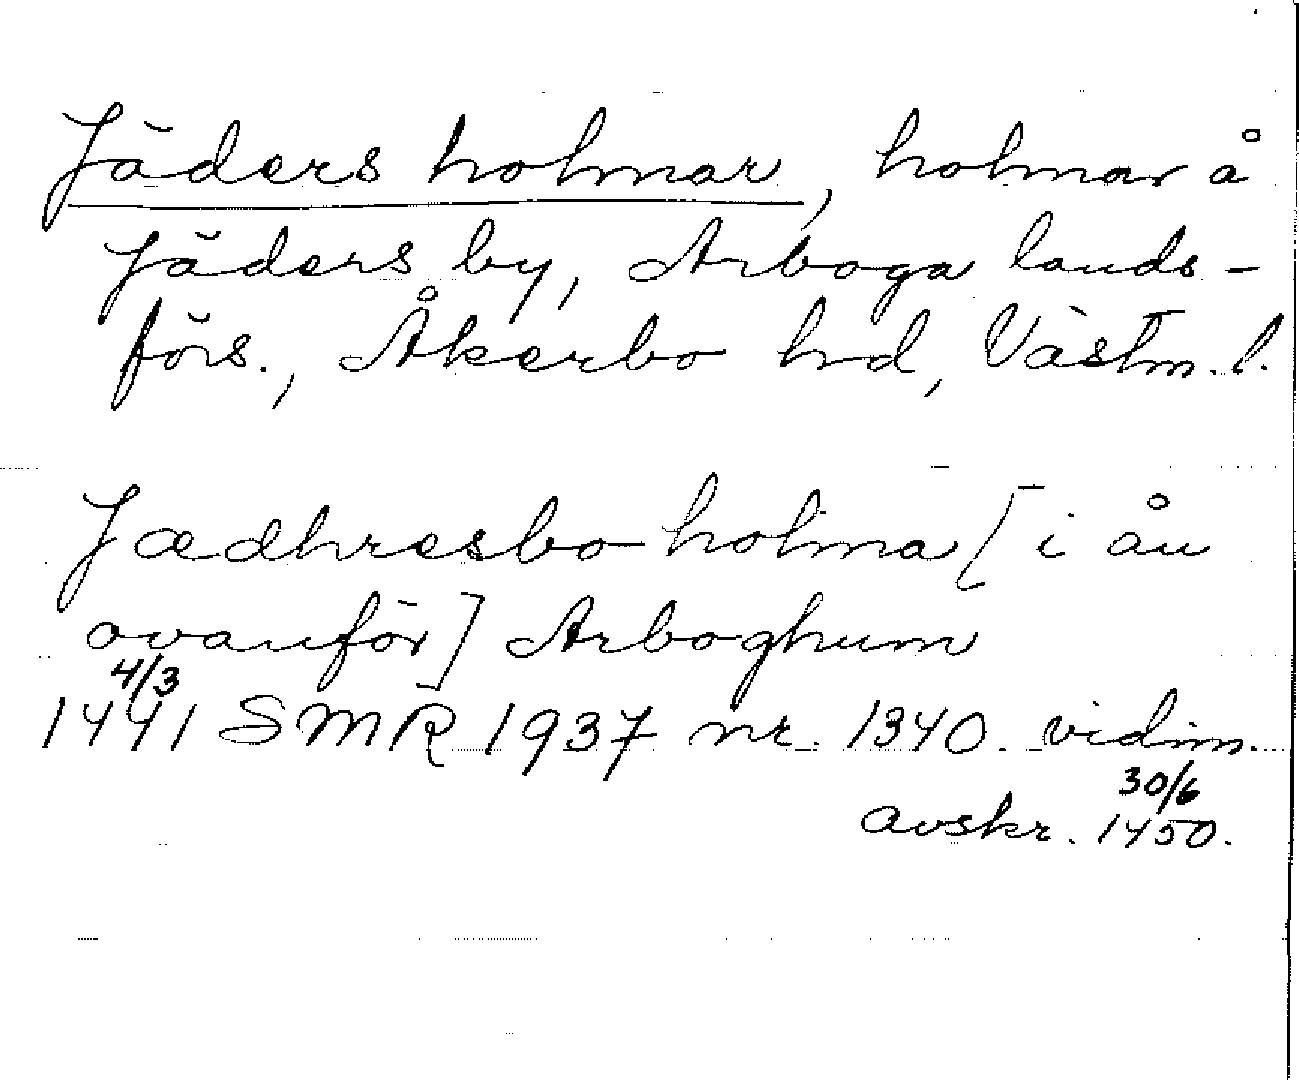 Jäders holmar, holmar å
Jäders by, Arboga lands-
förs., Åkerbo hd, Västm. l.
Jædhresbo holma [i ån
ovanför] Arboghum
4/3
1441 SMR 1937 nr. 1340. vidim.
30/6
avskr. 1450.